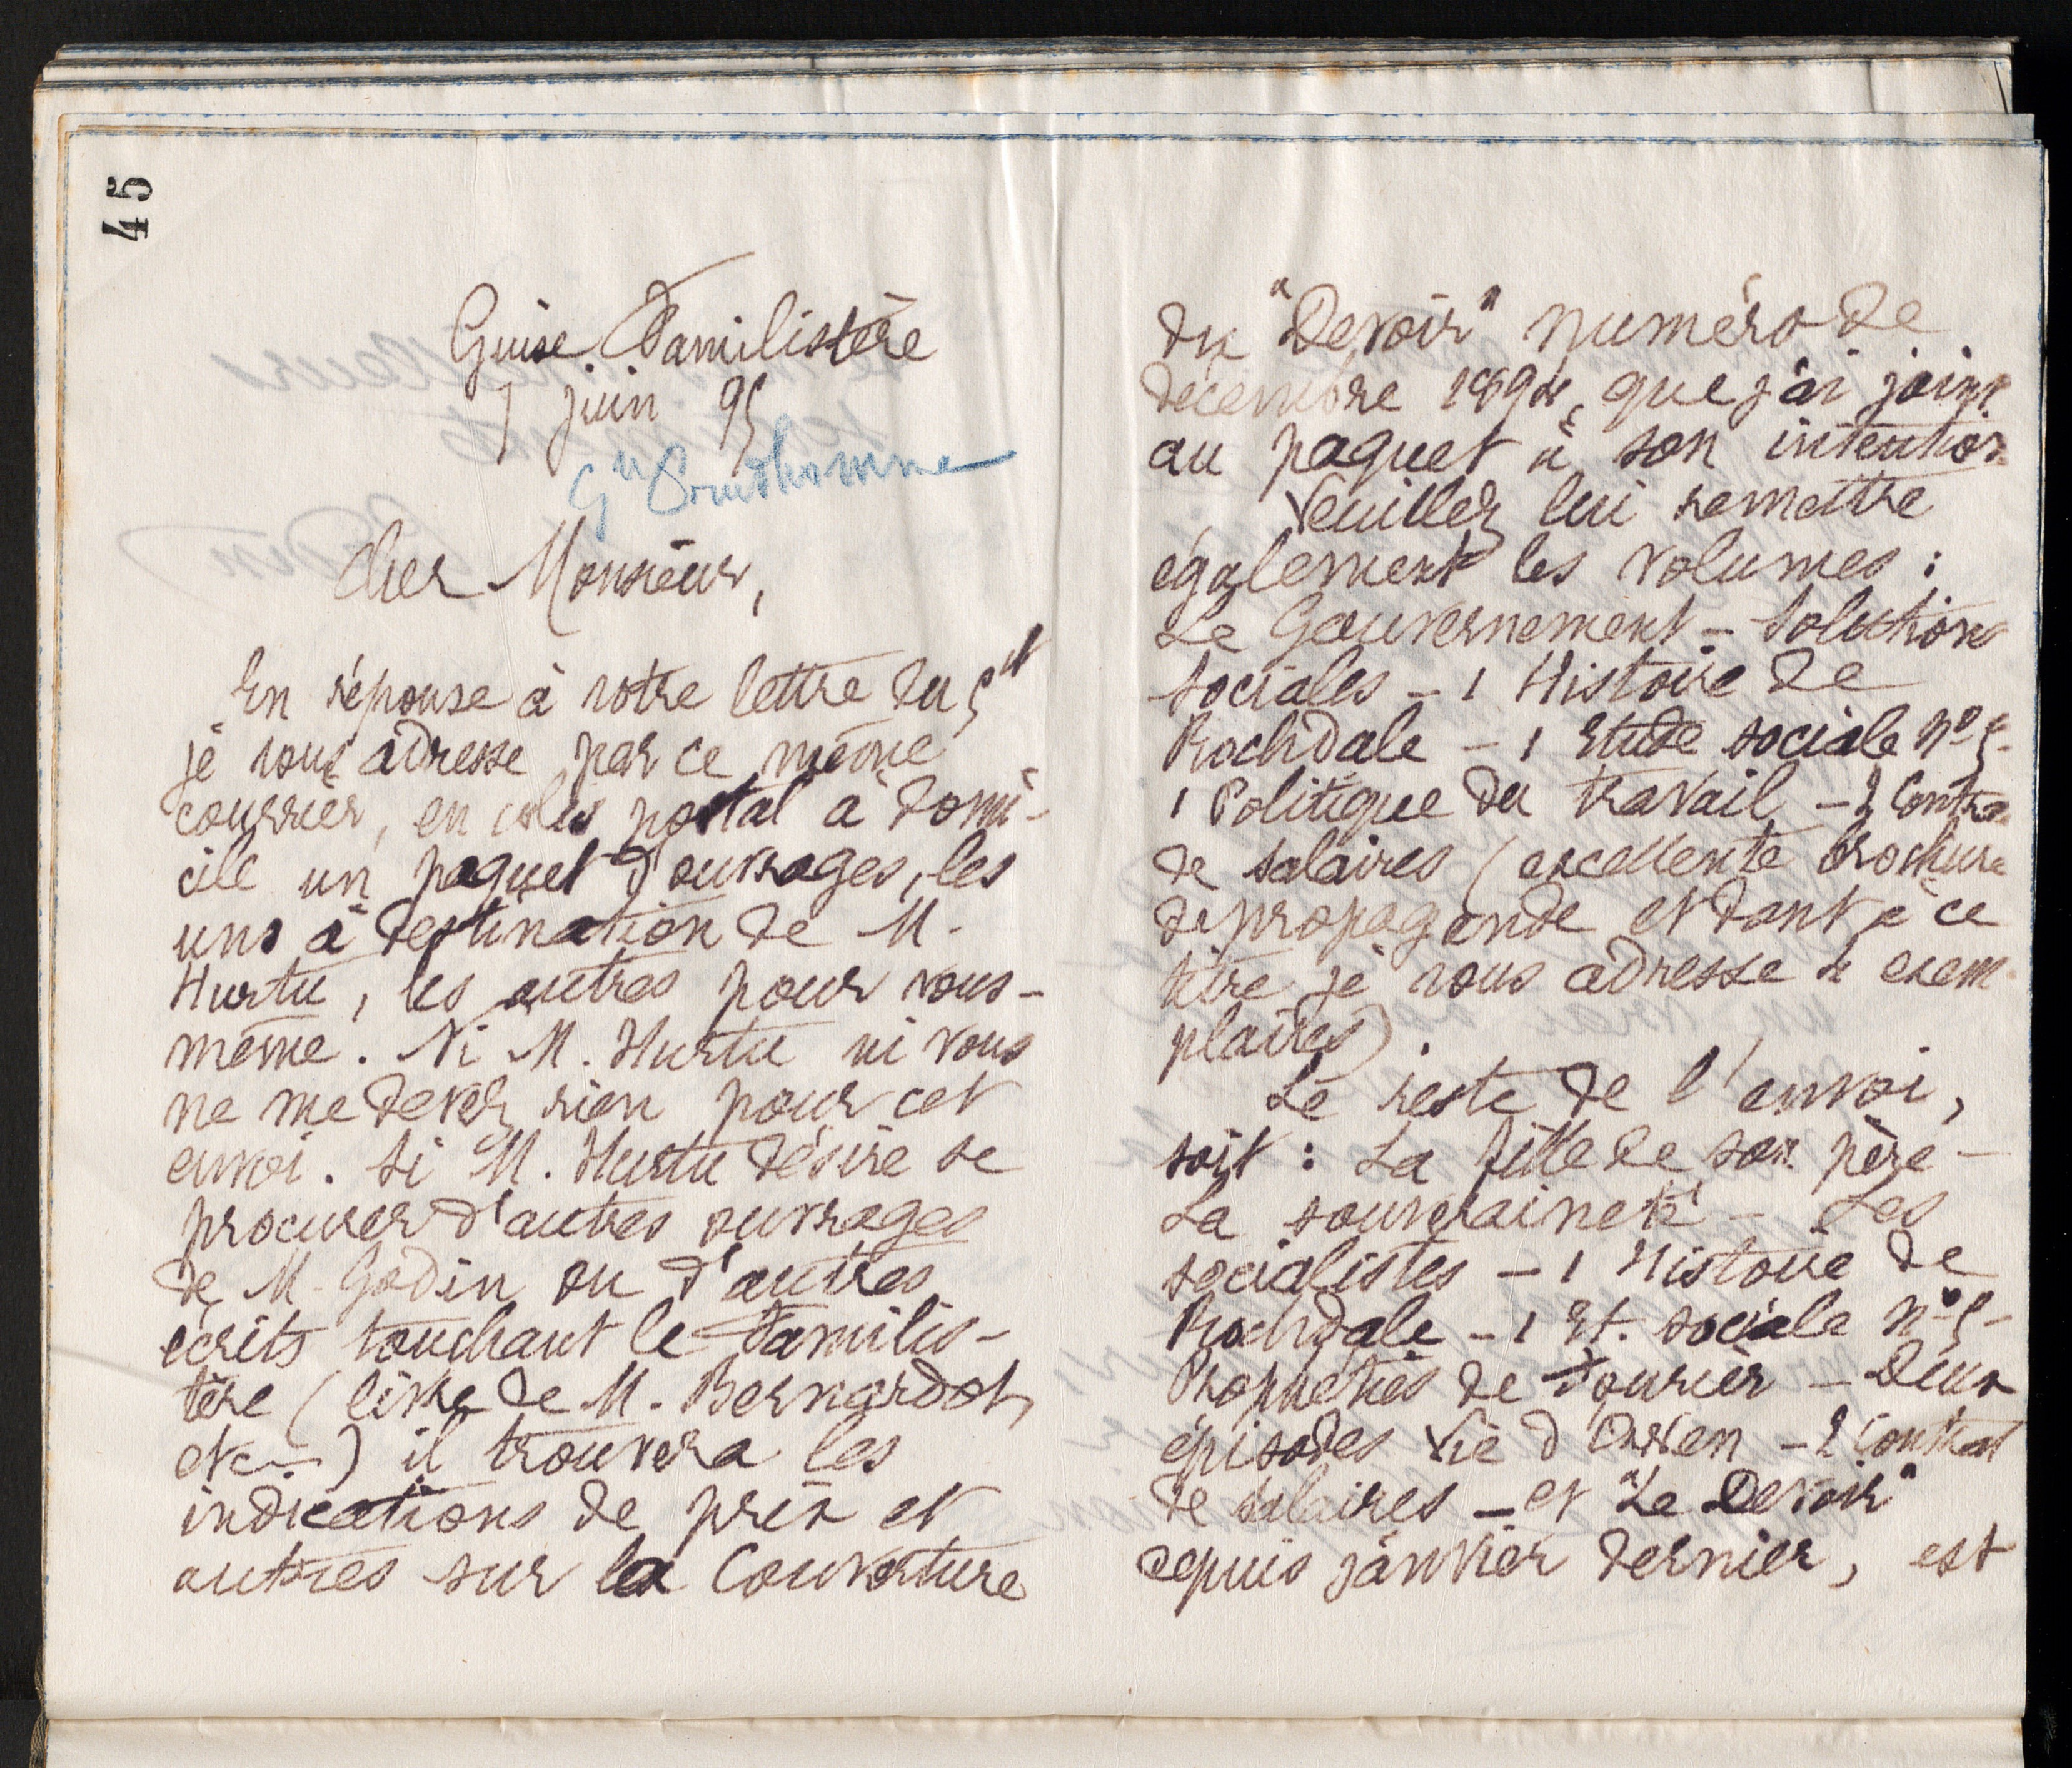 45
Guise Familistère
7 juin 95
Gn Prudhomme
Cher Monsieur,
En réponse à votre lettre du 5 ct
je vous adresse par ce même
courrier, en colis postal à domi-
cile un paquet d'ouvrages, les
uns à destination de M.
Hurtu, les autres pour vous-
même. Ni M. Hurtu ni vous
ne me devez rien pour cet
envoi. Si M. Hurtu désire se
procurer d'autres ouvrages
de M. Godin ou d'autres
écrits touchant le Familis-
tère (livre de M. Bernardot,
etc—) il trouvera les
indications de prix et
autres sur la Couverture
du "Devoir" numéro de
décembre 1894, que j'ai joint
au paquet à son intention
Veuillez lui remettre
également les volumes :
Le Gouvernement - Solutions
sociales - 1 Histoire de
Rochdale - 1 Etude sociale No 5-
1 Politique du travail - 2 Contrat
de salaires (excellente brochure
de propagande et dont à ce
titre je vous adresse 4 exem-
plaires).
Le reste de l'envoi,
soit : La fille de son père -
La souveraineté - Les
socialistes - 1 Histoire de
Rochdale - 1 Et. sociale No 5-
Prophéties de Fourier - Deux
épisodes Vie d'Owen - 2 Contrat
de salaires - et "Le Devoir"
depuis janvier dernier, est